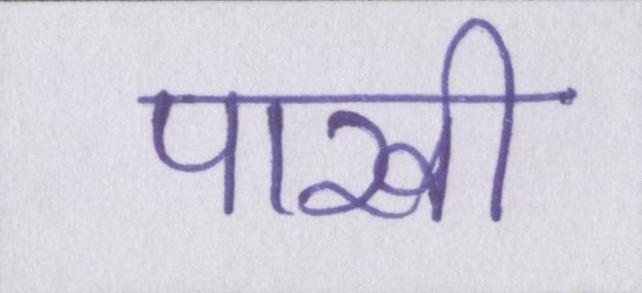 पाखी